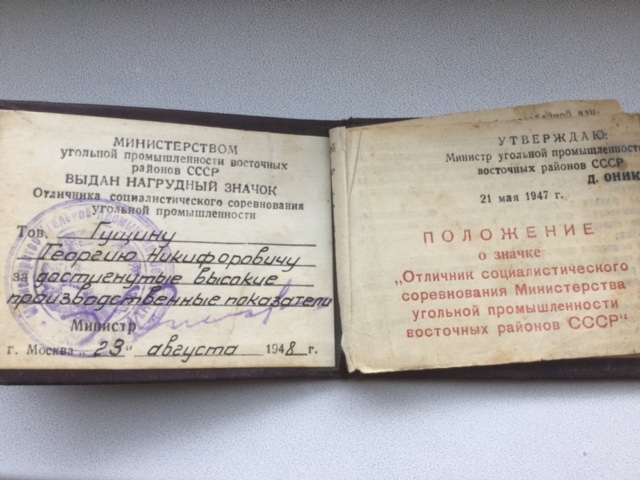 МИНИСТЕРСТВОМ
угольной промышленности восточных
районов СССР
ВЫДАН НАГРУДНЫЙ ЗНАЧОК
Отличника социалистического соревнования
угольной промышленности
Тов. Гущину
Георгию Никифоровичу
за достигнутые высокие
производственные показатели
Министр
г. Москва „23“ августа 1948 г.
УТВЕРЖДАЮ:
Министр угольной промышленност
восточных районов СССР
Д. ОНИК
21 мая 1947 г.
ПОЛОЖЕНИЕ
о значке
„Отличник социалистического
соревнования Министерства
угольной промышленности
восточных районов СССР“